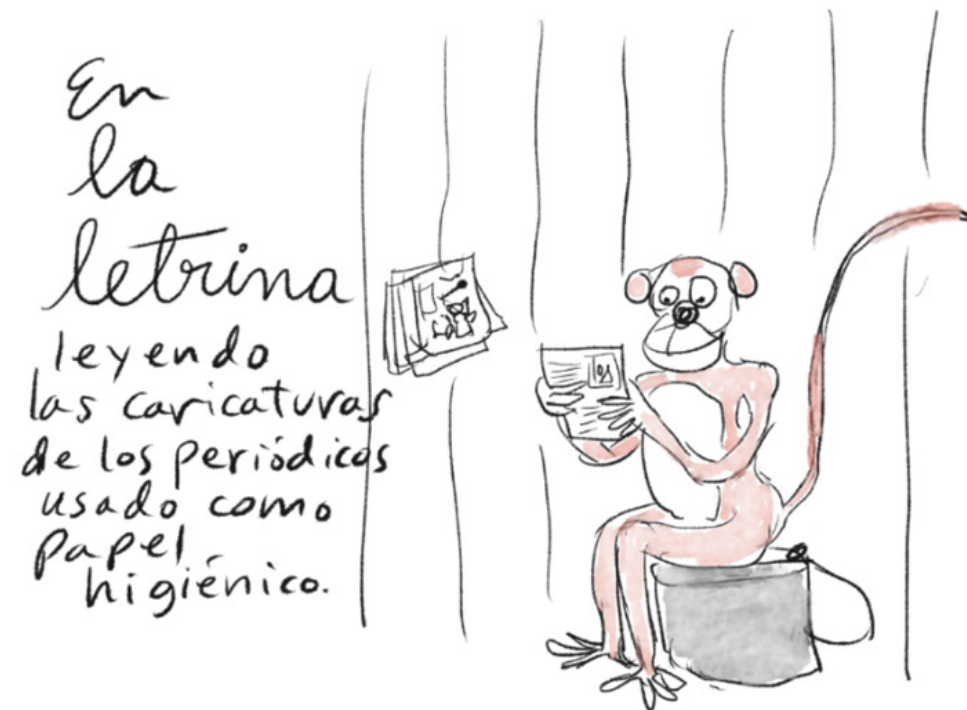 En
la
letrina
leyendo
las caricaturas
de los periódicos
usado como
papel
higiénico.